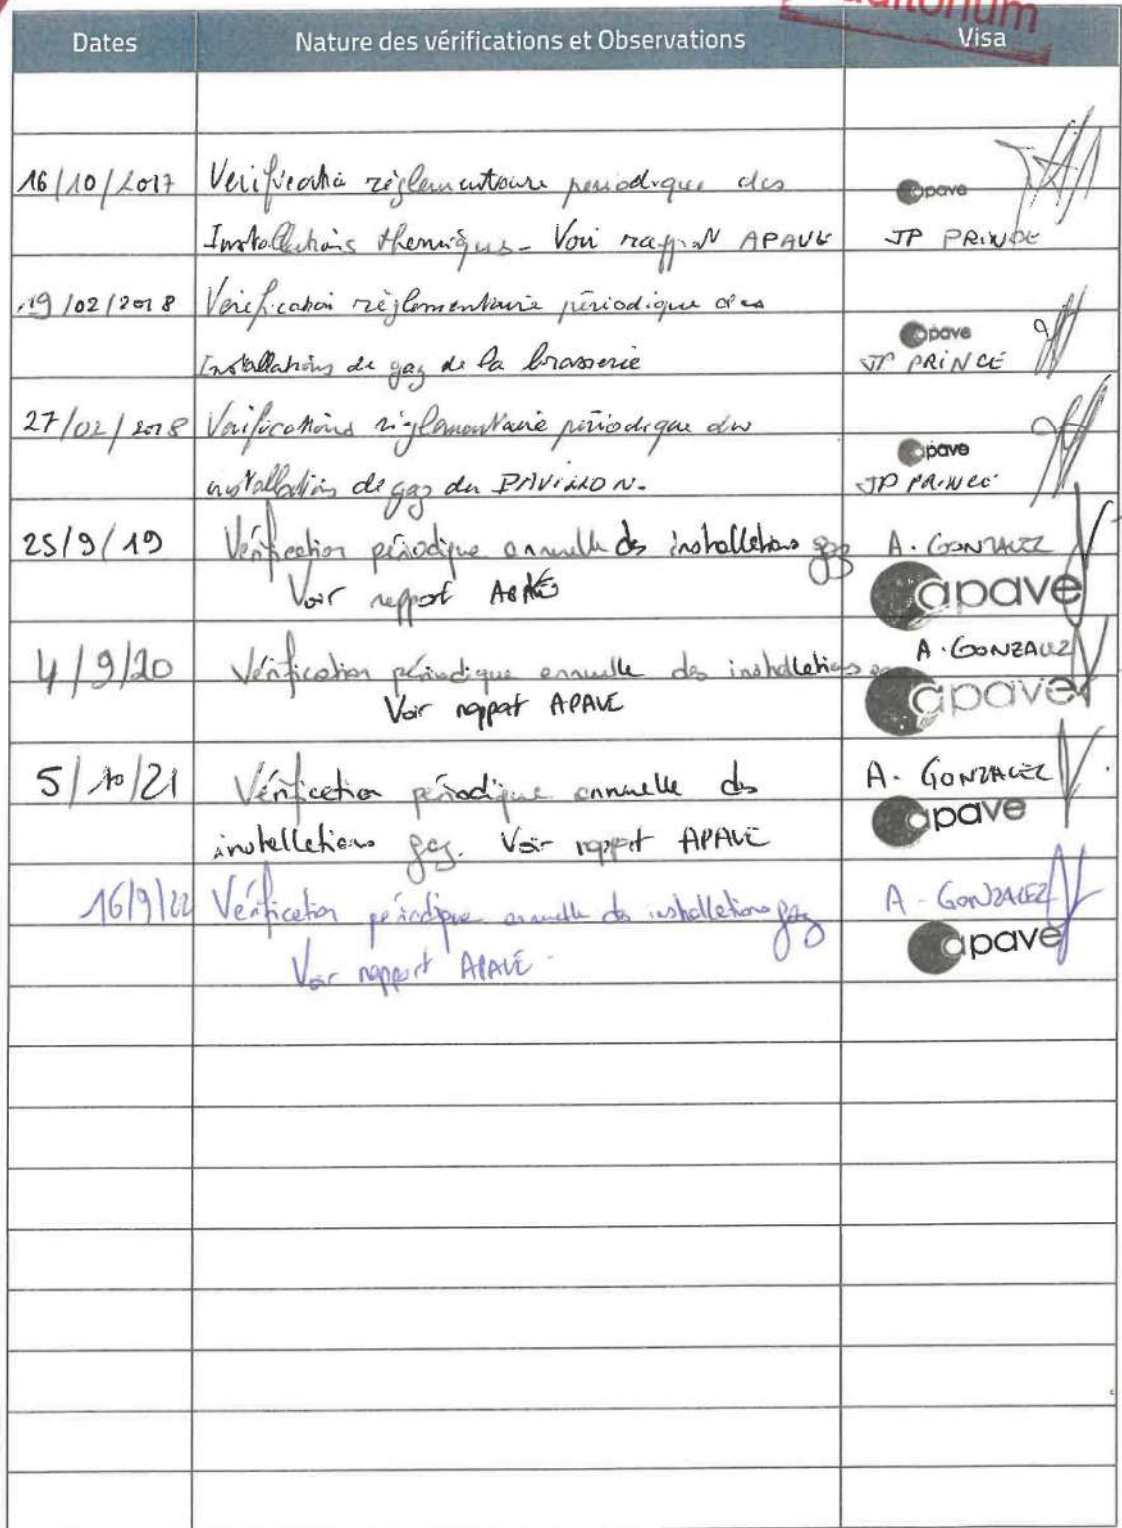 Auditorium
Dates Nature des vérifications et Observations Visa
16/10/2017 Verification règlementaire periodique des
apave
Installations thermiques - Voir rapport APAVE JP PRINCE
19/02/2018 Verification règlementaire périodique des
apave
Installations de gaz de la brasserie JP PRINCE
27/02/2018 Verifications règlementaire périodique des
apave
installations de gaz du PAVILLON. JP PRINCE
25/9/19 Vérification périodique annuelle des installations gaz A. GONZALEZ
Voir rapport apave
4/9/20 Vérification périodique annuelle des installations A. GONZALEZ
Voir rapport APAVE apave
5/10/21 Vérification périodique annuelle des A. GONZALEZ
installations gaz. Voir rapport APAVE apave
16/9/22 Vérification périodique annuelle des installations gaz A - GONZALEZ
Voir rapport APAVE - apave